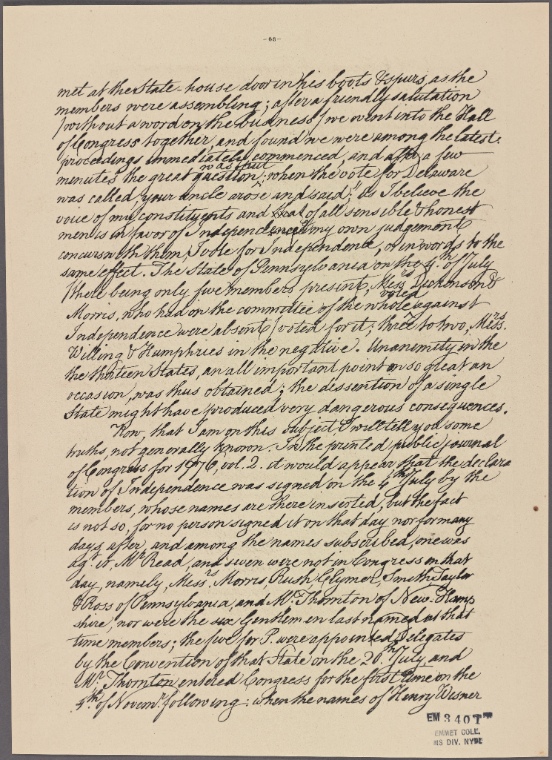 -68-
met at the State-house door in his boots & spurs, as the
members were assembling; after a friendly salutation
(without a word on the business) we went into the Hall
of Congress together, and found we were among the latest:
proceedings immediately commenced, and after a few
minutes the great question was put
was called, your uncle arose and said; "As I believe the
voice of my constituents and that of all sensible & honest
men is in favor of Independence, & my own judgement
concurs with them, I vote for Independence, or in words to the
same effect. The State of Pennsylvania on the 4th of July
(there being only five members present, Messrs Dickinson &
Morris, who had on the committee of the whole voted against
Independence were absent) voted for it; three to two, Messrs.
Willing & Humphries in the negative. Unanimity in the
the thirteen States, an all important point on so great an
occasion, was thus obtained; the dissention of a single
State might have produced very dangerous consequences.
Now, that I am on this subject I will tell you some
truths, not generally known. In the printed public journal
of Congress for 1776, vol. 2. it would appear that the declara
tion of Independence was signed on the 4th July by the
members, whose names are there inserted, but the fact
is not so, for no person signed it on that day nor for many
days after, and among the names subscribed, one was
agst it, Mr Read, and seven were not in Congress on that
day, namely, Messrs Morris Rush Clymer, Smith Taylor
& Ross of Pennsylvania, and Mr Thornton of New-Hamp
shire, nor were the six Gentlemen last named at that
time members; the five for P. were appointed Delegates
by the Convention of that State on the 20th July, and
Mr Thornton entered Congress for the first time on the
4th of Novemr following; when the names of Henry Wisner
EM 3407
EMMET COLL.
MS DIV. NYPL